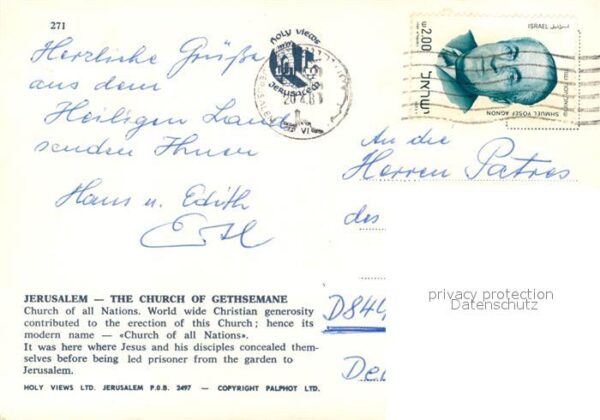 271
Herzliche Grüße
aus dem
Heiligen Lande
senden Ihnen
Hans u. Edith
HOLY VIEWS
JERUSALEM
ISRAEL اسرائيل
2.00
ישראל
SHMUEL YOSEF AGNON
שמואל יוסף עגנון
An die
Herren Patres
des
D844
privacy protection
Datenschutz
JERUSALEM — THE CHURCH OF GETHSEMANE
Church of all Nations. World wide Christian generosity
contributed to the erection of this Church; hence its
modern name — «Church of all Nations».
It was here where Jesus and his disciples concealed them-
selves before being led prisoner from the garden to
Jerusalem.
HOLY VIEWS LTD. JERUSALEM P.O.B. 2497 — COPYRIGHT PALPHOT LTD.